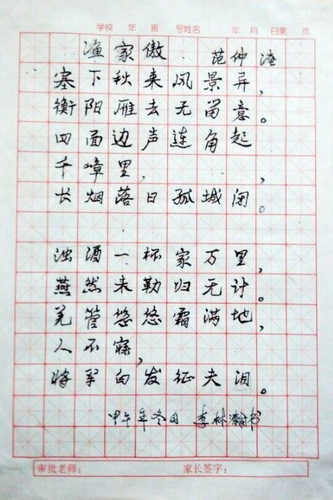 学校 年 班 号姓名 年 月 日第 页
渔家傲 范仲淹
塞下秋来风景异,
衡阳雁去无留意。
四面边声连角起,
千嶂里,
长烟落日孤城闭。
浊酒一杯家万里,
燕然未勒归无计。
羌管悠悠霜满地,
人不寐,
将军白发征夫泪。
甲午年冬日 李林瀚书
审批老师: 家长签字: